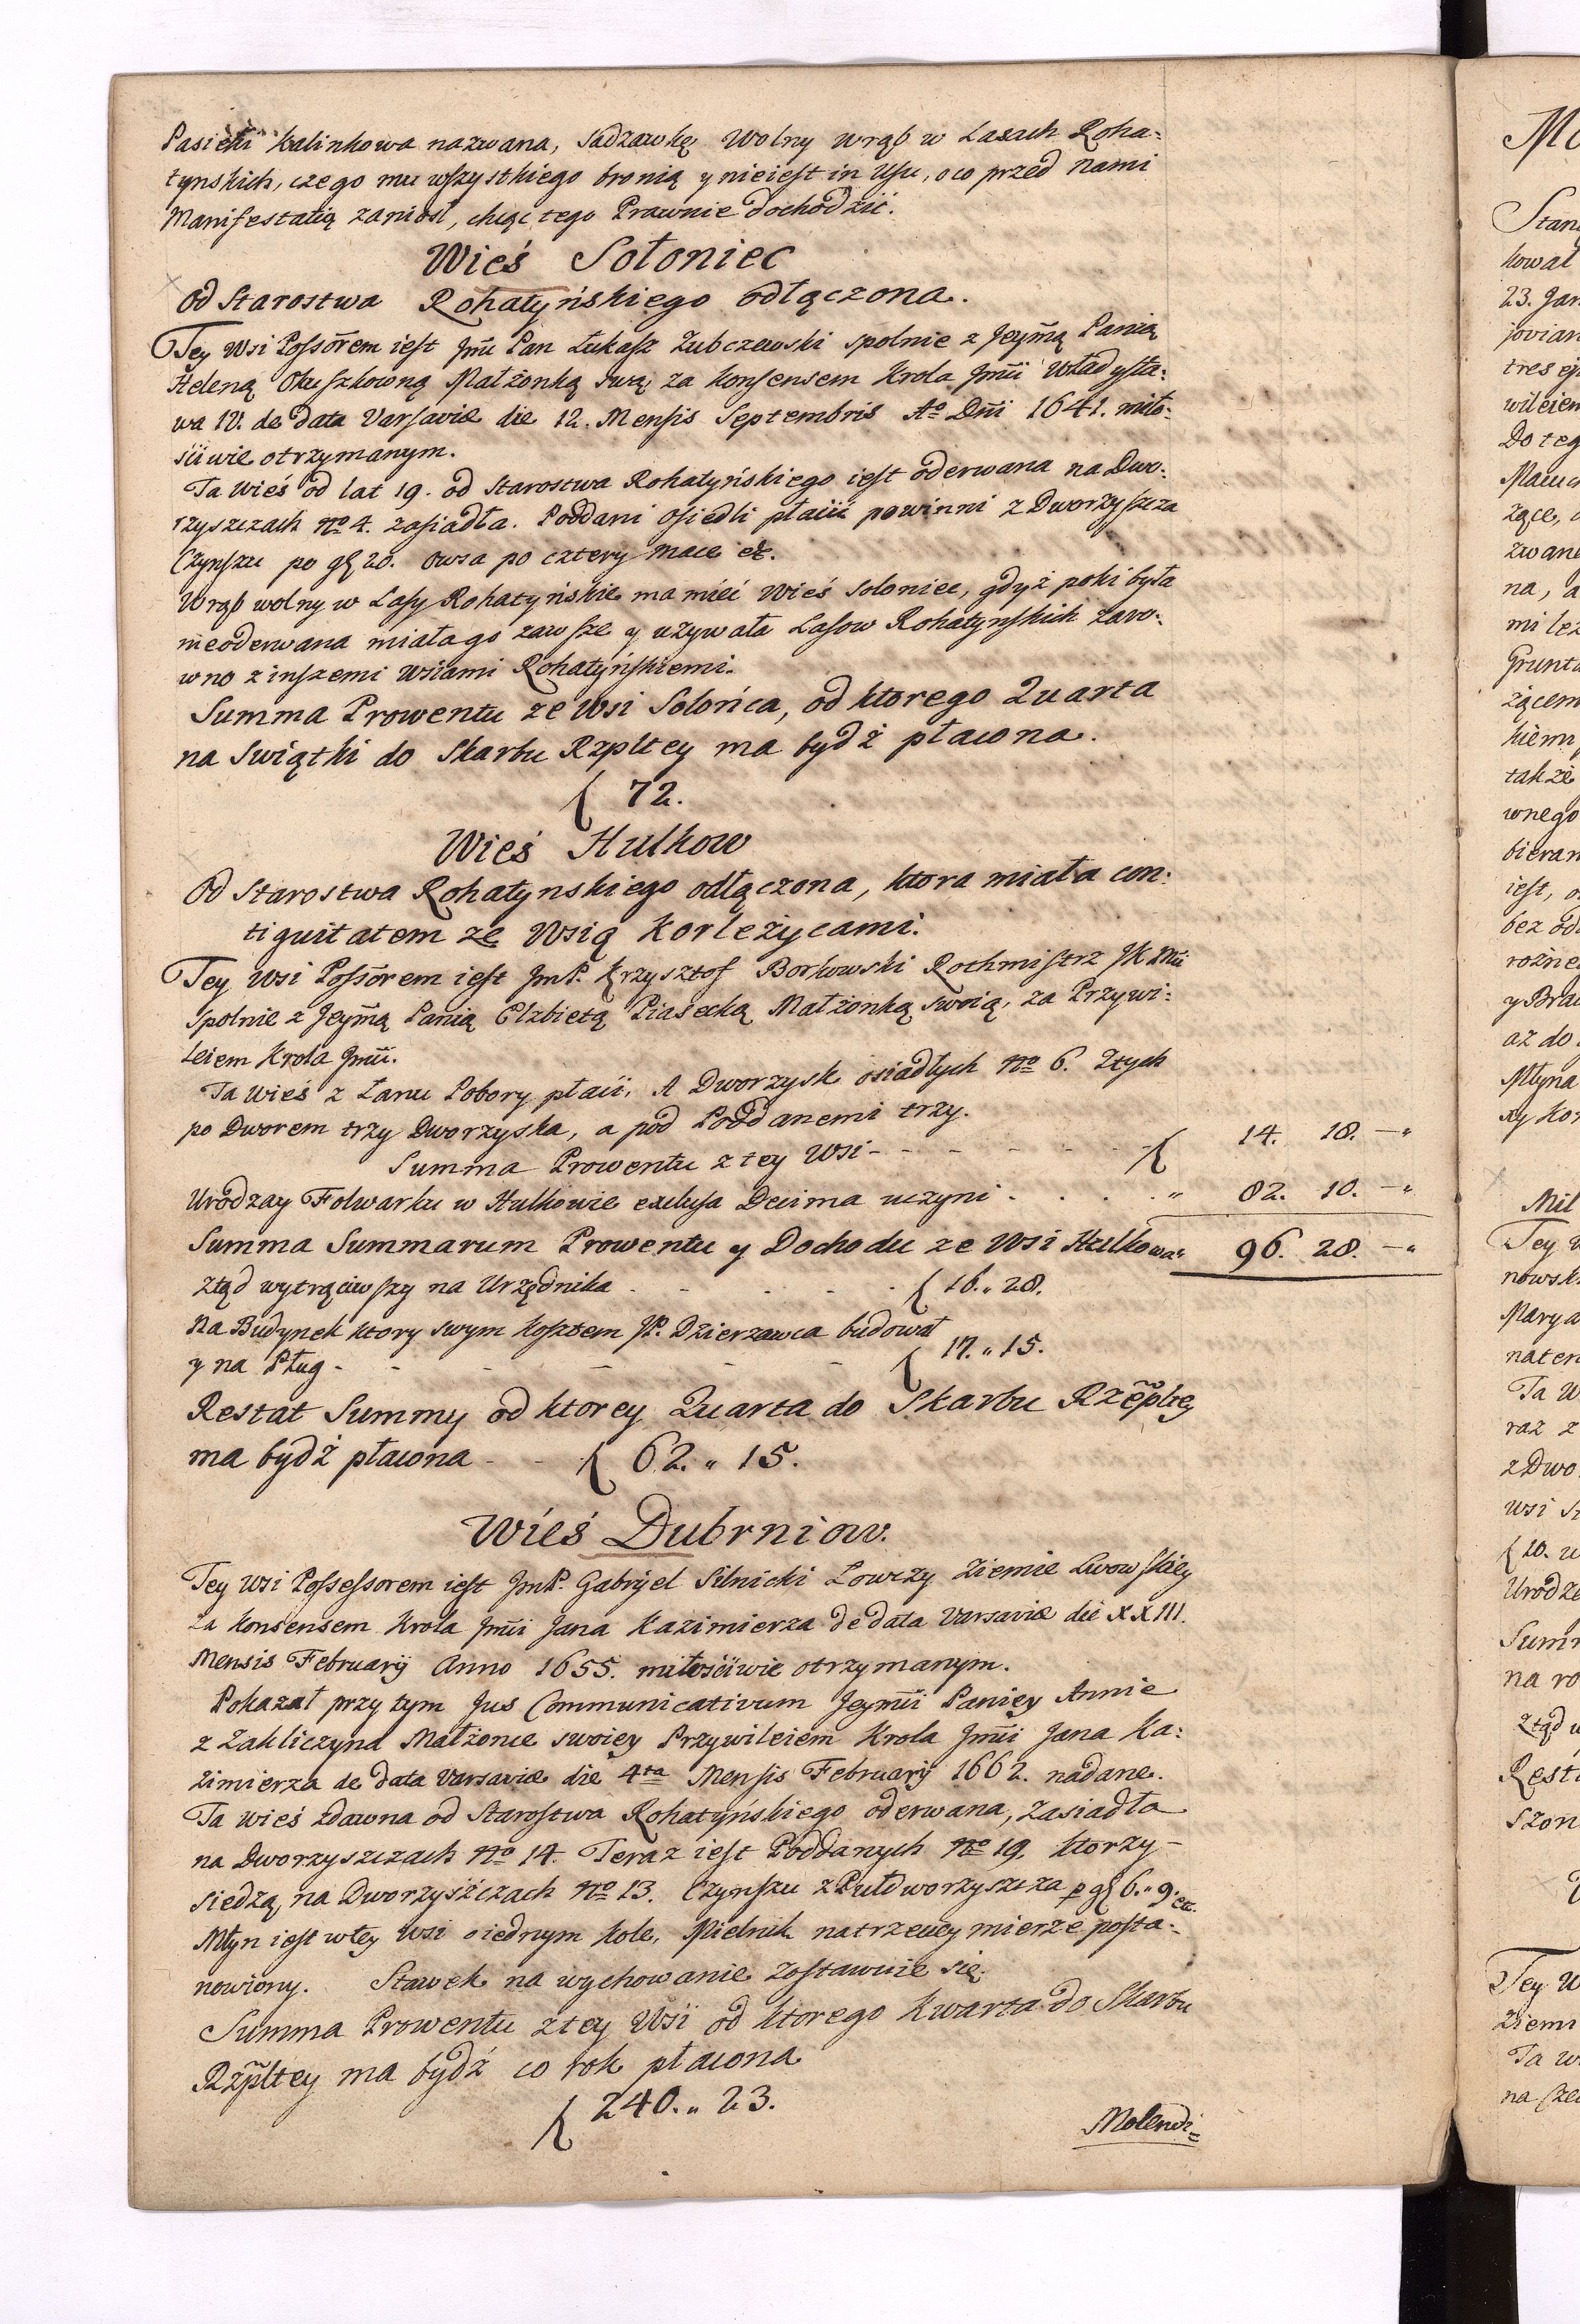 Pasieki Kalinkowa nazwana, Sadzawkę Wolny wrąb w Lasach Roha:
tynskich, czego mu wszystkiego bronią y nieiest in Usu, o co przed nami
Manifestatią zaniosł, chcąc tego Prawnie dochodzić.
Wieś Sołoniec
Od Starostwa Rohatyńskiego odłączona.
Tey Wsi Possorem iest Jmć Pan Łukasz Zubczewski spolnie z Jeymcią Panią
Heleną Małżonką swą za Konsensem Krola Jmci Władysła:
wa IV. de data Varsaviæ die 12. Mensis Septembris Ao Dni 1641. miło:
ściwie otrzymanym.
Ta Wieś od lat 19. od Starostwa Rohatyńskiego iest oderwana na Dwo:
rzyszczach No 4. zasiadła. Poddani osiedli płacić powinni z Dworzyszcza
Czynszu po gł 20. Owsa po cztery mace etc.
Wrąb wolny w Lasy Rohatyńskie ma mieć Wieś Soloniec, gdyż poki była
nieoderwana miała go zawsze y używała Lasow Rohatynskich zaro:
wno z inszemi Wsiami Rohatyńskiemi.
Summa Prowentu ze Wsi Solońca, od ktorego Quarta
na Swiątki do Skarbu Rzpltey ma bydź płacona.
f 72.
Wieś Hulkow
Od Starostwa Rohatynskiego odłączona, ktora miała con:
tiguitatem ze Wsią Korleżycami.
Tey Wsi Possorem iest JmP. Krzysztof Borkowski Rothmistrz JKMci
spolnie z Jeymcią Panią Elzbietą Piasecką Małżonką swoią, za Przywi:
leiem Krola Jmci.
Ta Wieś z Łanu Pobory płaci, A Dworzysk osiadłych No 6. Z tych
po Dworem trzy Dworzyska, a pod Poddanemi trzy.
Summa Prowentu z tey Wsi - - - - - - f 14. 18. —"
Urodzay Folwarku w Hulkowie exclusa Decima uczyni . . . . " 82. 10. —"
Summa Summarum Prowentu y Dochodu ze Wsi Hulkowa " 96. 28. —"
Ztąd wytrąciwszy na Urzędnika - - - - - f 16. " 28.
Na Budynek ktory swym kosztem JP. Dzierzawca budował
y na Pług - - - - - - f 17. " 15.
Restat Summy od ktorey Quarta do Skarbu Rzepltey
ma bydź płacona - - - f 62. " 15.
Wieś Dubrniow.
Tey Wsi Possessorem iest JmP. Gabryel Silnicki Łowczy Ziemie Lwowskiey
za Konsensem Krola Jmci Jana Kazimierza de data Varsaviæ die XXIII.
Mensis Februarij Anno 1655. miłościwie otrzymanym.
Pokazał przy tym Jus Communicativum Jeymci Paniey Annie
z Zakliczyna Małżonce swoiey Przywileiem Krola Jmci Jana Ka:
zimierza de data Varsaviæ die 4ta Mensis Februarij 1662. nadane.
Ta Wieś zdawna od Starostwa Rohatyńskiego oderwana, zasiadła
na Dworzyszczach No 14. Teraz iest Poddanych No 19. ktorzy
siedzą na Dworzyszczach No 13. Czynszu z Pułdworzyszcza p gł 6. " 9. etc.
Młyn iest w tey Wsi o iednym kole, Mielnik na trzeciey mierze posta:
nowiony. Stawek na wychowanie zostawuie się.
Summa Prowentu z tey Wsi od ktorego Kwarta do Skarbu
Rzpltey ma bydź co rok płacona
f 240. " 23.
Molendi=